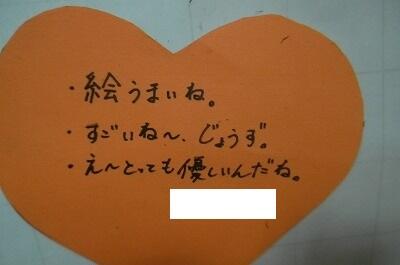 ・絵うまいね。
・すごいね～、じょうず。
・え～とっても優しいんだね。